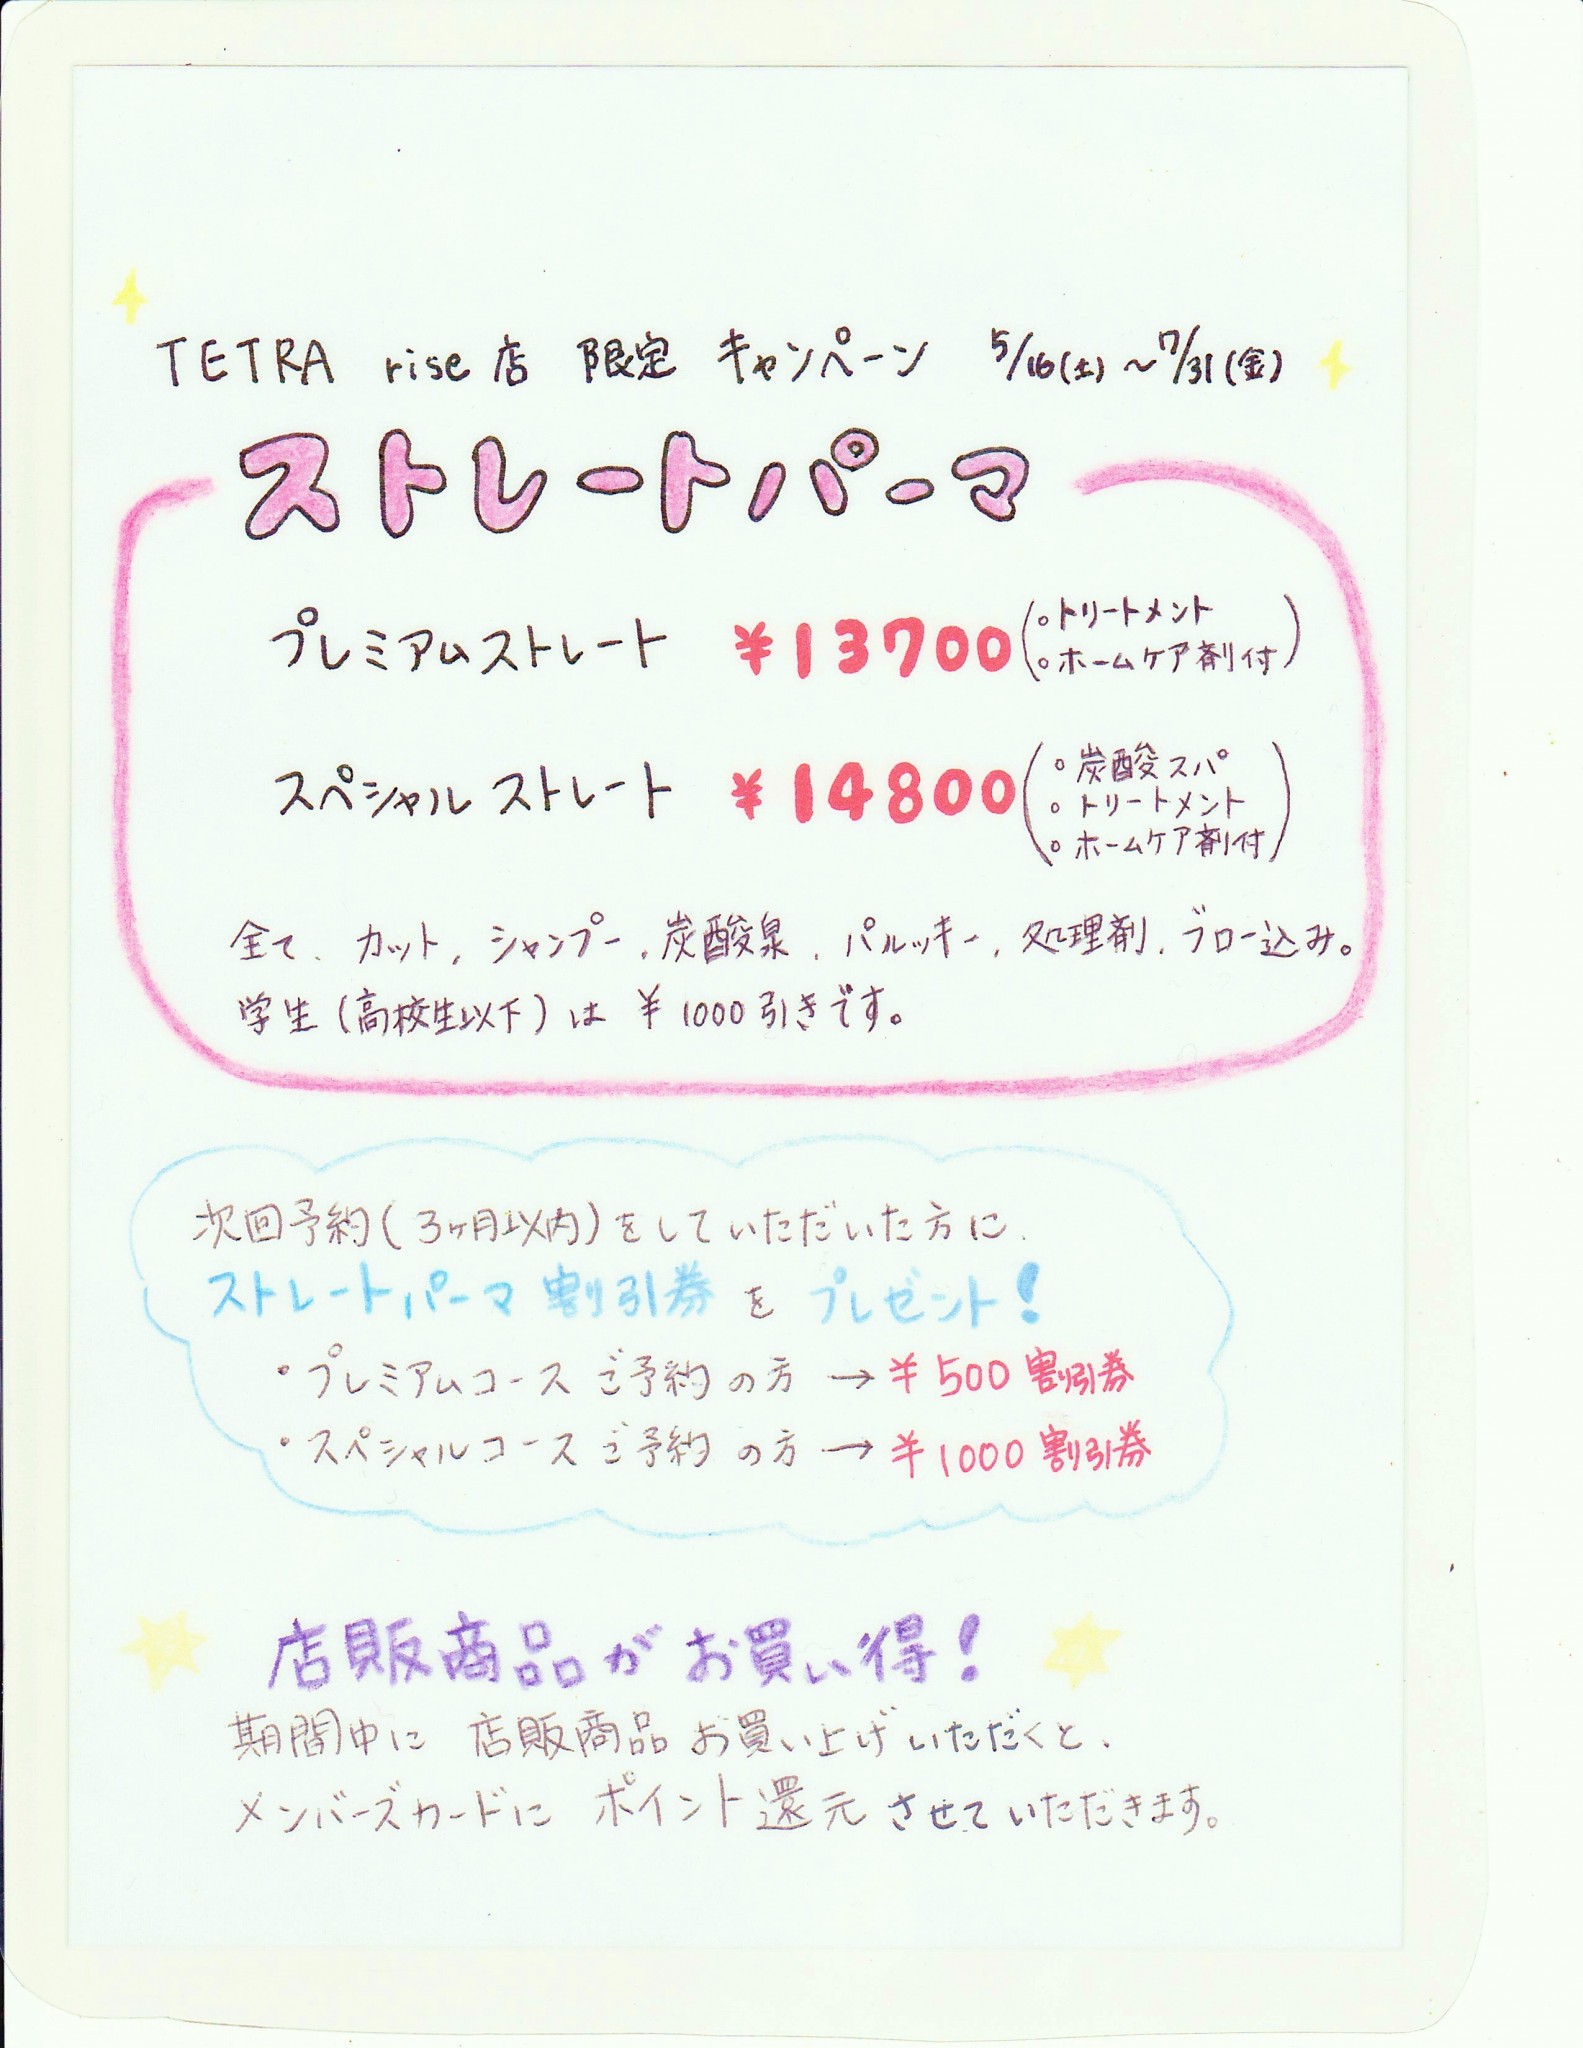 TETRA rise店 限定 キャンペーン 5/16(土)～7/31(金)
ストレートパーマ
プレミアムストレート ¥13700(。トリートメント
。ホームケア剤付)
スペシャルストレート ¥14800(。炭酸スパ
。トリートメント
。ホームケア剤付)
全て、カット、シャンプー、炭酸泉、パルッキー、処理剤、ブロー込み。
学生(高校生以下)は ¥1000引きです。
次回予約(3ヶ月以内)をしていただいた方に、
ストレートパーマ割引券をプレゼント!
・プレミアムコースご予約の方→¥500割引券
・スペシャルコースご予約の方→¥1000割引券
店販商品がお買い得!
期間中に 店販商品お買い上げいただくと、
メンバーズカードに ポイント還元させていただきます。